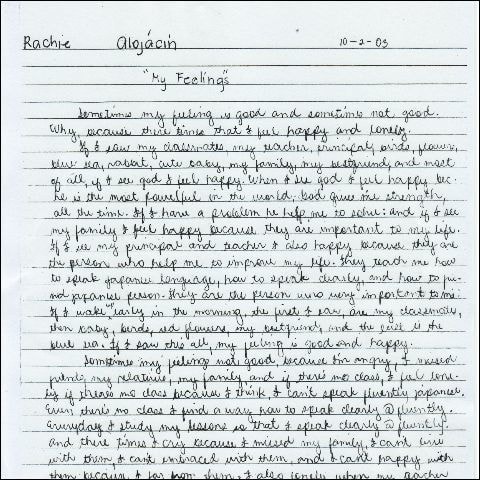 Rachie Alojácin 10-2-03
"My Feelings"
Sometimes my feeling is good and sometimes not good.
Why, because there times that I feel happy and lonely.
If I saw my classmates, my teacher, principal, birds, flowers,
blue sea, rabbit, cute baby, my family, my bestfriend, and most
of all, if I see god I feel happy. When I see god I feel happy bec.
he is the most powerful in the world. God give me strength,
all the time. If I have a problem he help me to solve: and if I see
my family I feel happy because they are important to my life.
If I see my principal and teacher I also happy because they are
the person who help me to improve my life. They teach me how
to speak japanese language, how to speak clearly, and how to
japanese person. They are the person who very important to me.
If I wake early in the morning, the first I saw, are my classmate,
then baby, birds, red flowers, my bestfriend, and the is the
blue sea. If I saw this all, my feeling is good and happy.
Sometimes my feelings not good, because I'm angry, I missed
friends, my relatives, my family, and if there's no class, I feel lone-
ly if there's no class because I think I can't speak fluently japanese.
Even there's no class I find a way how to speak clearly @ fluently.
Everyday I study my lessons so that I speak clearly @ fluently.
And there times I cry because I missed my family, I can't live
with them, I can't embraced with them, and I can't happy with
them because I far from them. I also lonely when my teacher